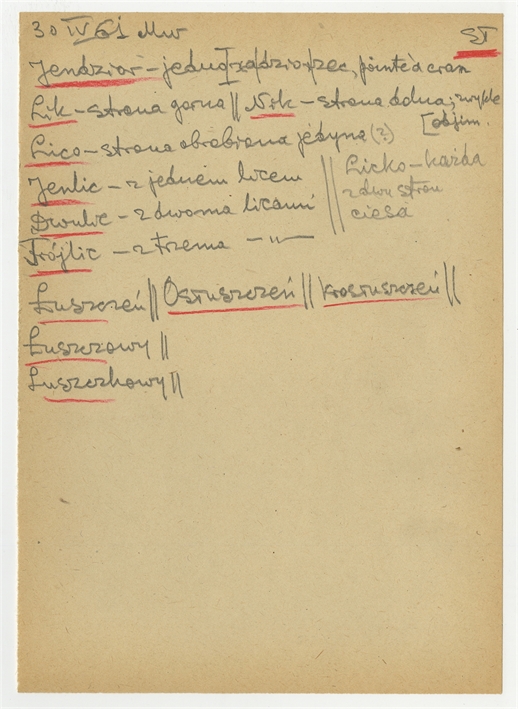 30 IV 61 Mw ST
Jendzior – jednorzędzior, pointe à cran
Lik – strona górna || Nik – strona dolna; zwykle
[obłm.
Lico – strona obrobiona jedyna (?)
Jenlic – z jednem licem
Dwulic – z dwoma licami
Trójlic – z trzema –"–
|| Licko – każda
z dwu stron
ciesa
Łuszczeń || Osłuszczeń || Krosłuszczeń ||
Łuszczowy ||
Łuszczkowy ||